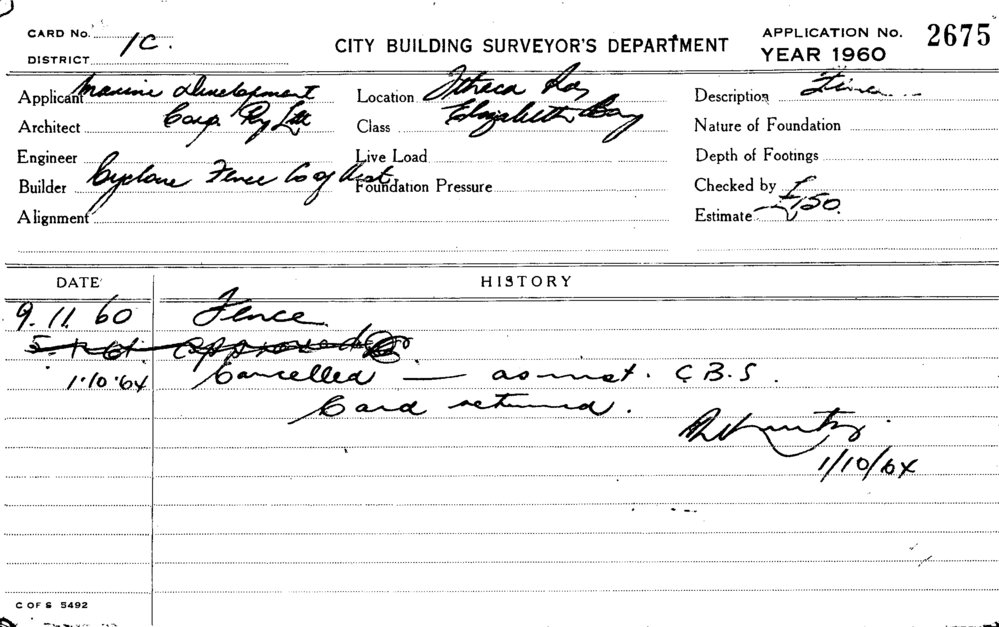 CARD No. 1C.
DISTRICT
CITY BUILDING SURVEYOR'S DEPARTMENT
APPLICATION No. 2675
YEAR 1960
Applicant Marine Development
Corp. Pty Ltd
Location Ithaca Rd
Elizabeth Bay
Description Fence
Architect
Class
Nature of Foundation
Engineer
Live Load
Depth of Footings
Builder Cyclone Fence Co of Aust
Foundation Pressure
Checked by
Alignment
Estimate £150.
DATE HISTORY
9.11.60 Fence
approved
1.10.64 Cancelled — as inst. C.B.S.
Card returned.
1/10/64
C OF S 5492